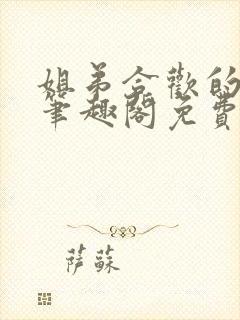 姐弟合歡的
筆趣閣免費
萨蘇